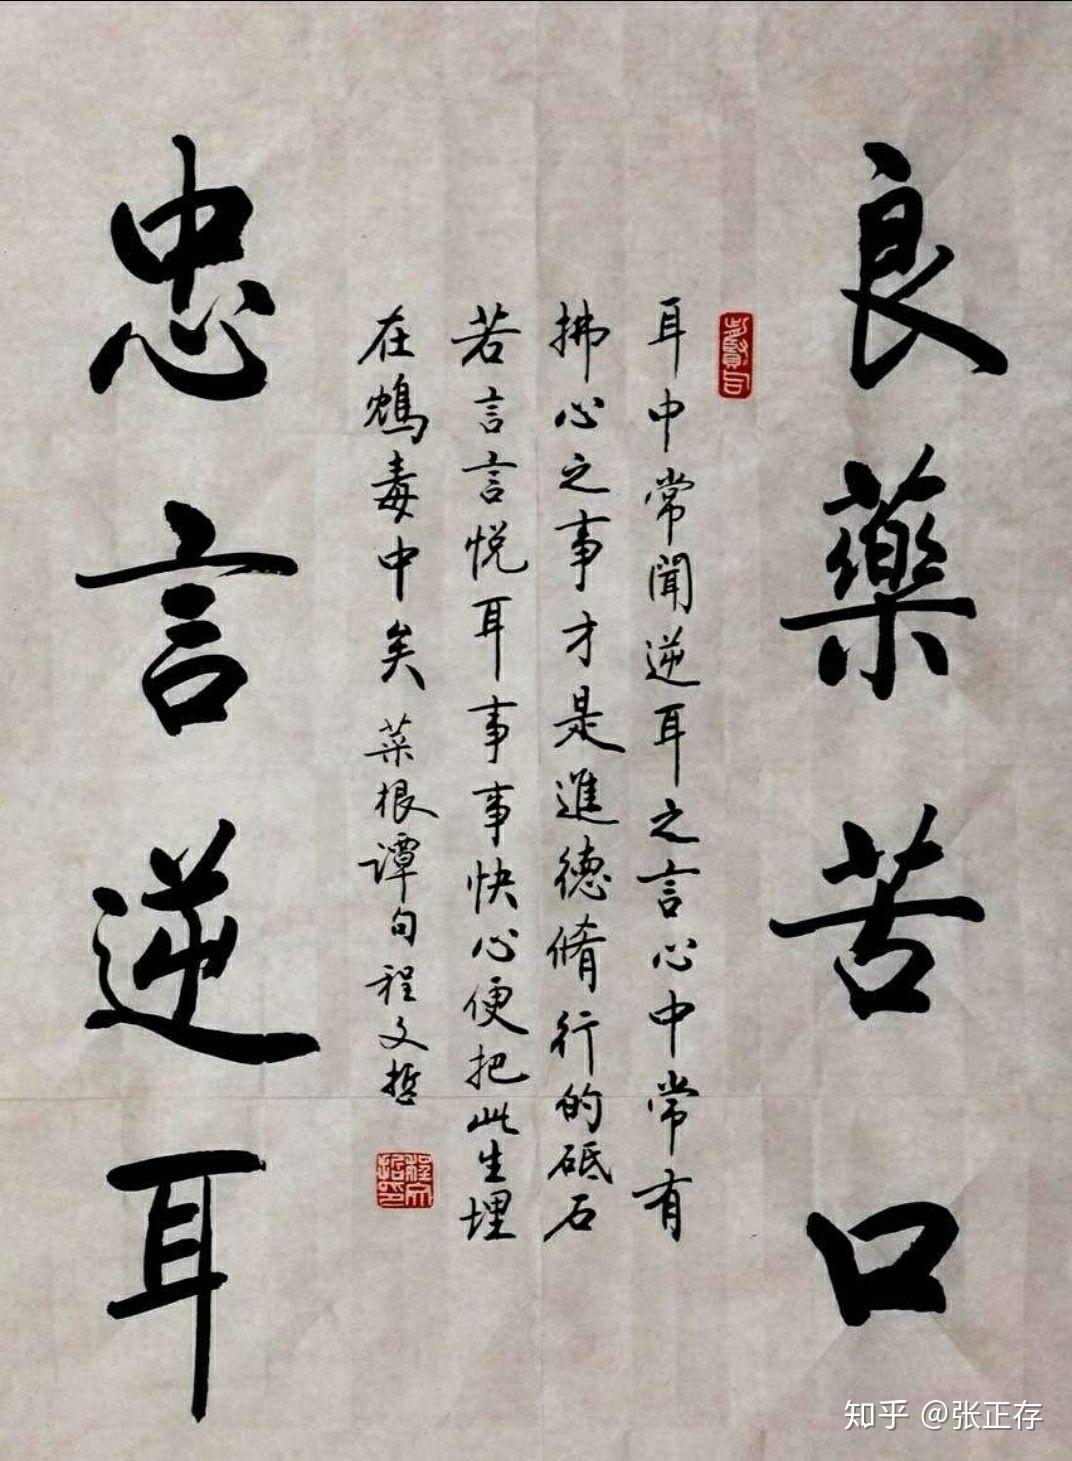 良藥苦口
耳中常聞逆耳之言心中常有
拂心之事才是進德脩行的砥石
若言言悦耳事事快心便把此生埋
在鴆毒中矣 菜根谭句程文哲
程文哲印
忠言逆耳
知乎 @张正存